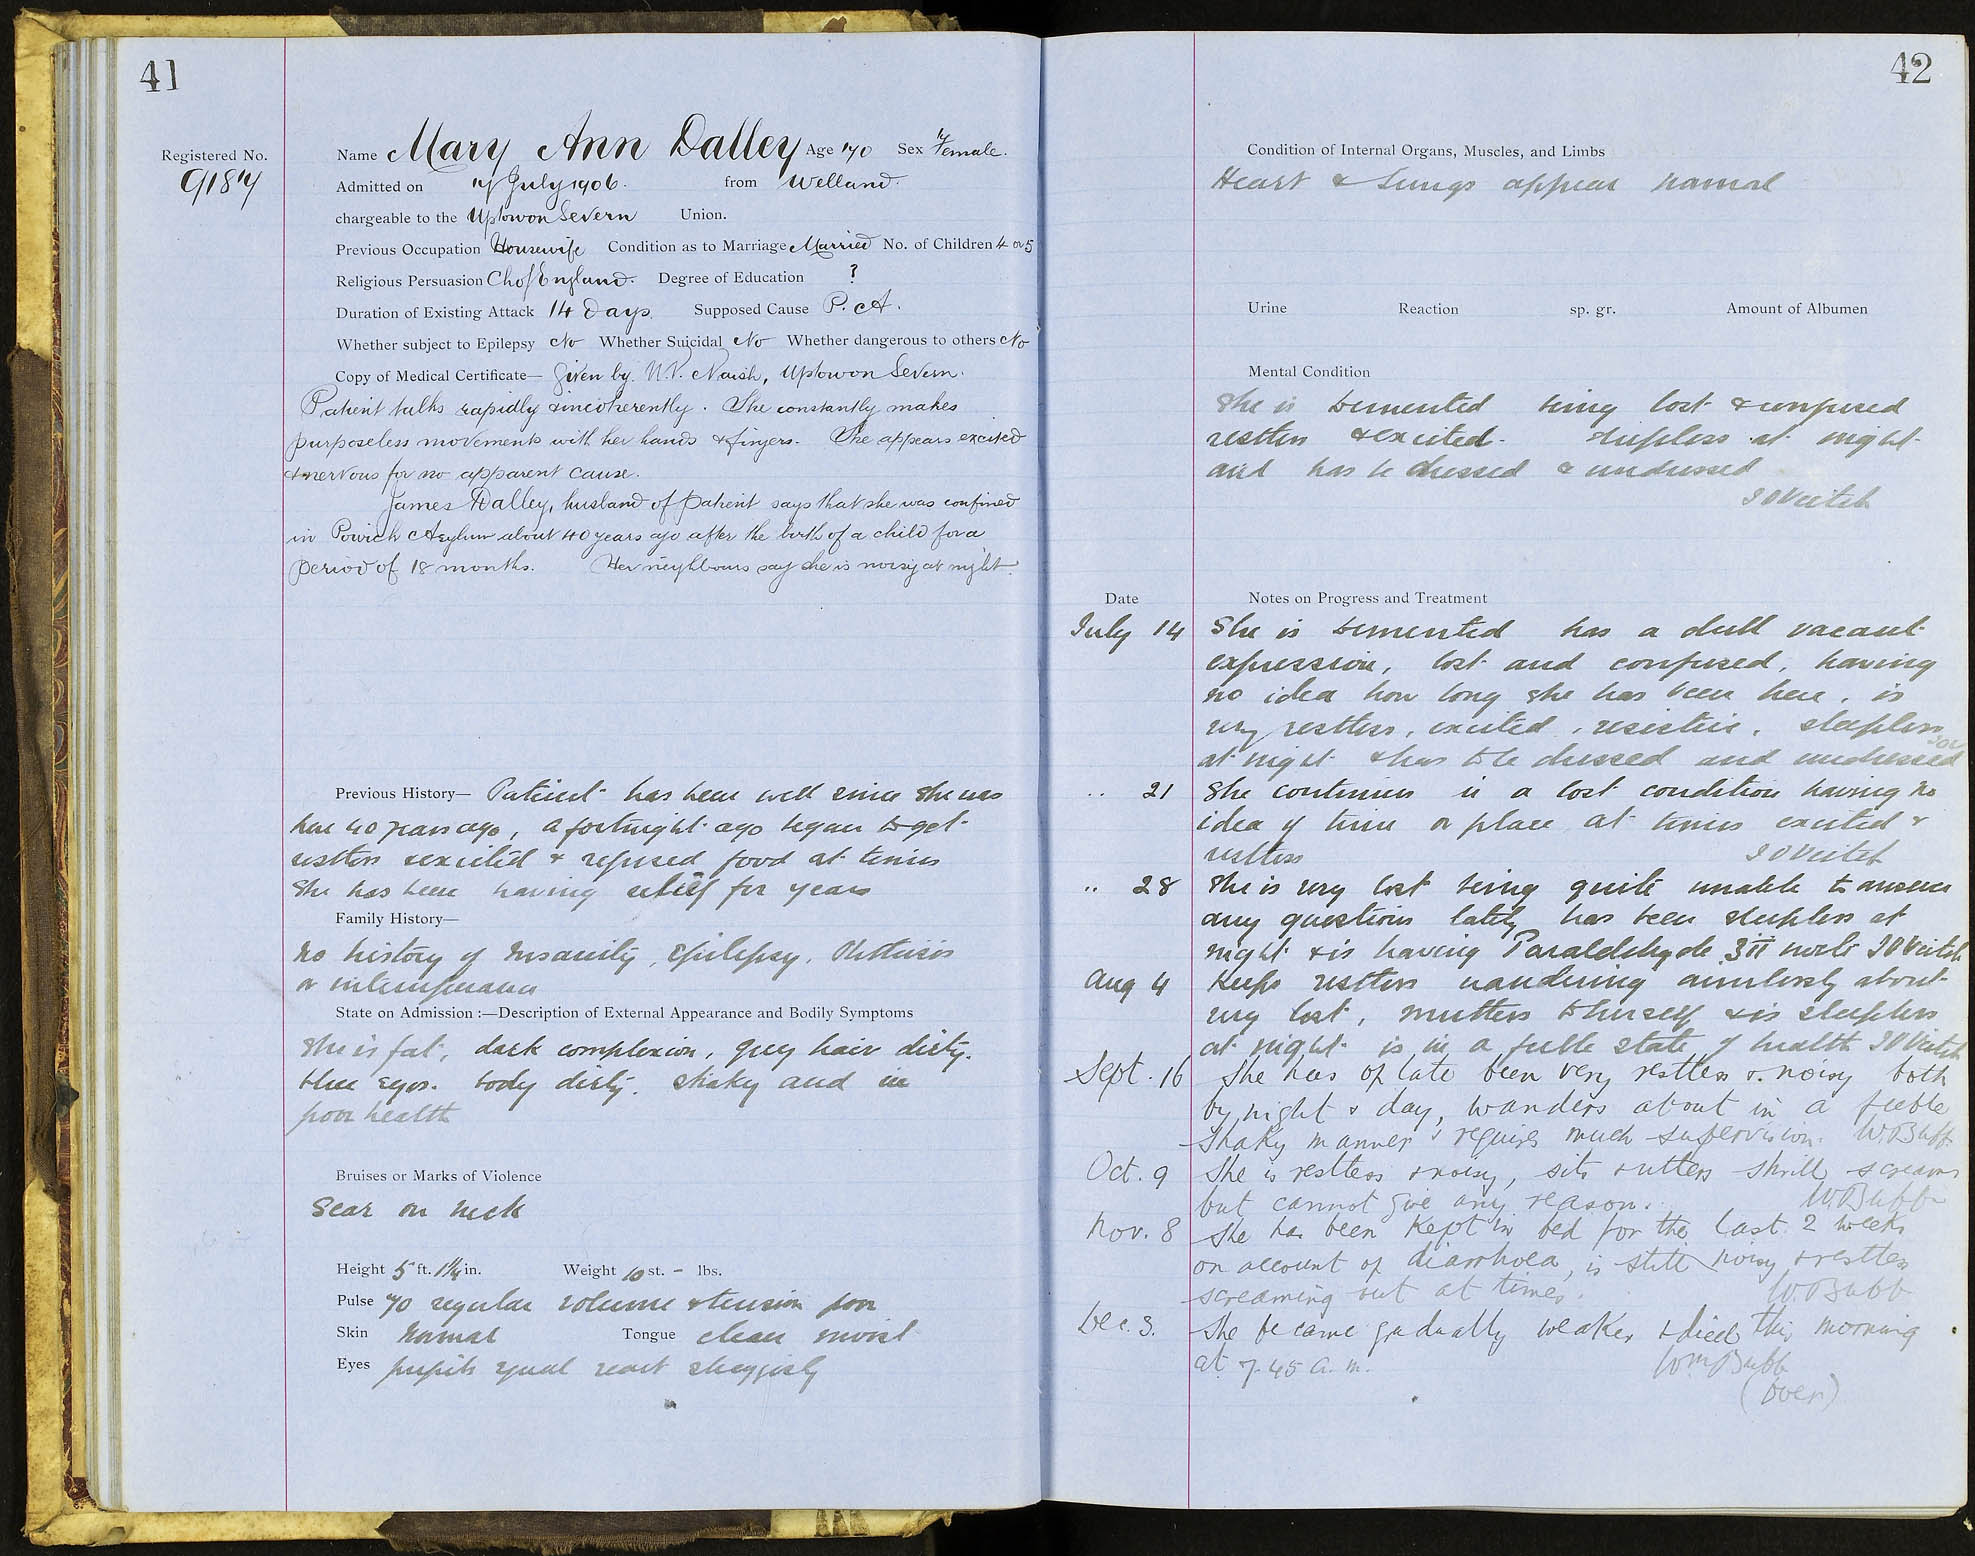 41
Registered No.
9187
Name Mary Ann Dalley Age 70 Sex Female.
Admitted on 7 July 1906. from Welland.
chargeable to the Upton on Severn Union.
Previous Occupation Housewife Condition as to Marriage Married No. of Children 4 or 5
Religious Persuasion Ch of England. Degree of Education ?
Duration of Existing Attack 14 Days Supposed Cause P. A.
Whether subject to Epilepsy No Whether Suicidal No Whether dangerous to others No
Copy of Medical Certificate— Given by Naish, Upton on Severn.
Patient talks rapidly & incoherently. She constantly makes
purposeless movements with her hands & fingers. She appears excited
& nervous for no apparent cause.
James Dalley, husband of patient says that she was confined
in Powick Asylum about 40 years ago after the birth of a child for a
period of 18 months. Her neighbours say she is noisy at night.
Previous History— Patient has been well since she was
here 40 years ago, a fortnight ago began to get
restless & excited & refused food at times
She has been having relief for years
Family History—
No history of Insanity, Epilepsy, Phthisis
or intemperance
State on Admission :—Description of External Appearance and Bodily Symptoms
She is fat, dark complexion, grey hair dirty.
blue eyes. body dirty. shaky and in
poor health
Bruises or Marks of Violence
Scar on neck
Height 5 ft. 1¼ in. Weight 10 st. - lbs.
Pulse 70 regular volume & tension poor
Skin Normal Tongue clean moist
Eyes pupils equal react sluggishly
42
Condition of Internal Organs, Muscles, and Limbs
Heart & Lungs appear normal
Urine Reaction sp. gr. Amount of Albumen
Mental Condition
She is demented being lost & confused
restless & excited. sleepless at night
and has to be dressed & undressed
J O Veitch
Date Notes on Progress and Treatment
July 14 She is demented has a dull vacant
expression, lost and confused, having
no idea how long she has been here, is
very restless, excited, resistive, sleepless
at night & has to be dressed and undressed JOV
.. 21 She continues in a lost condition having no
idea of time or place at times excited &
restless J O Veitch
.. 28 She is very lost being quite unable to answer
any questions lately has been sleepless at
night & is having Paraldehyde ʒii nocte J O Veitch
Aug 4 Keeps restless wandering aimlessly about
very lost, mutters to herself & is sleepless
at night is in a feeble state of health J O Veitch
Sept. 16 She has of late been very restless & noisy both
by night & day, wanders about in a feeble
shaky manner & requires much supervision. W. Bubb
Oct. 9 She is restless & noisy, sits & utters shrill screams
but cannot give any reason. W. Bubb
Nov. 8 She has been kept in bed for the last 2 weeks
on account of diarrhoea, is still noisy & restless
screaming out at times. W. Bubb
Dec. 3. She became gradually weaker & died this morning
at 7.45 a.m. Wm Bubb
(over)